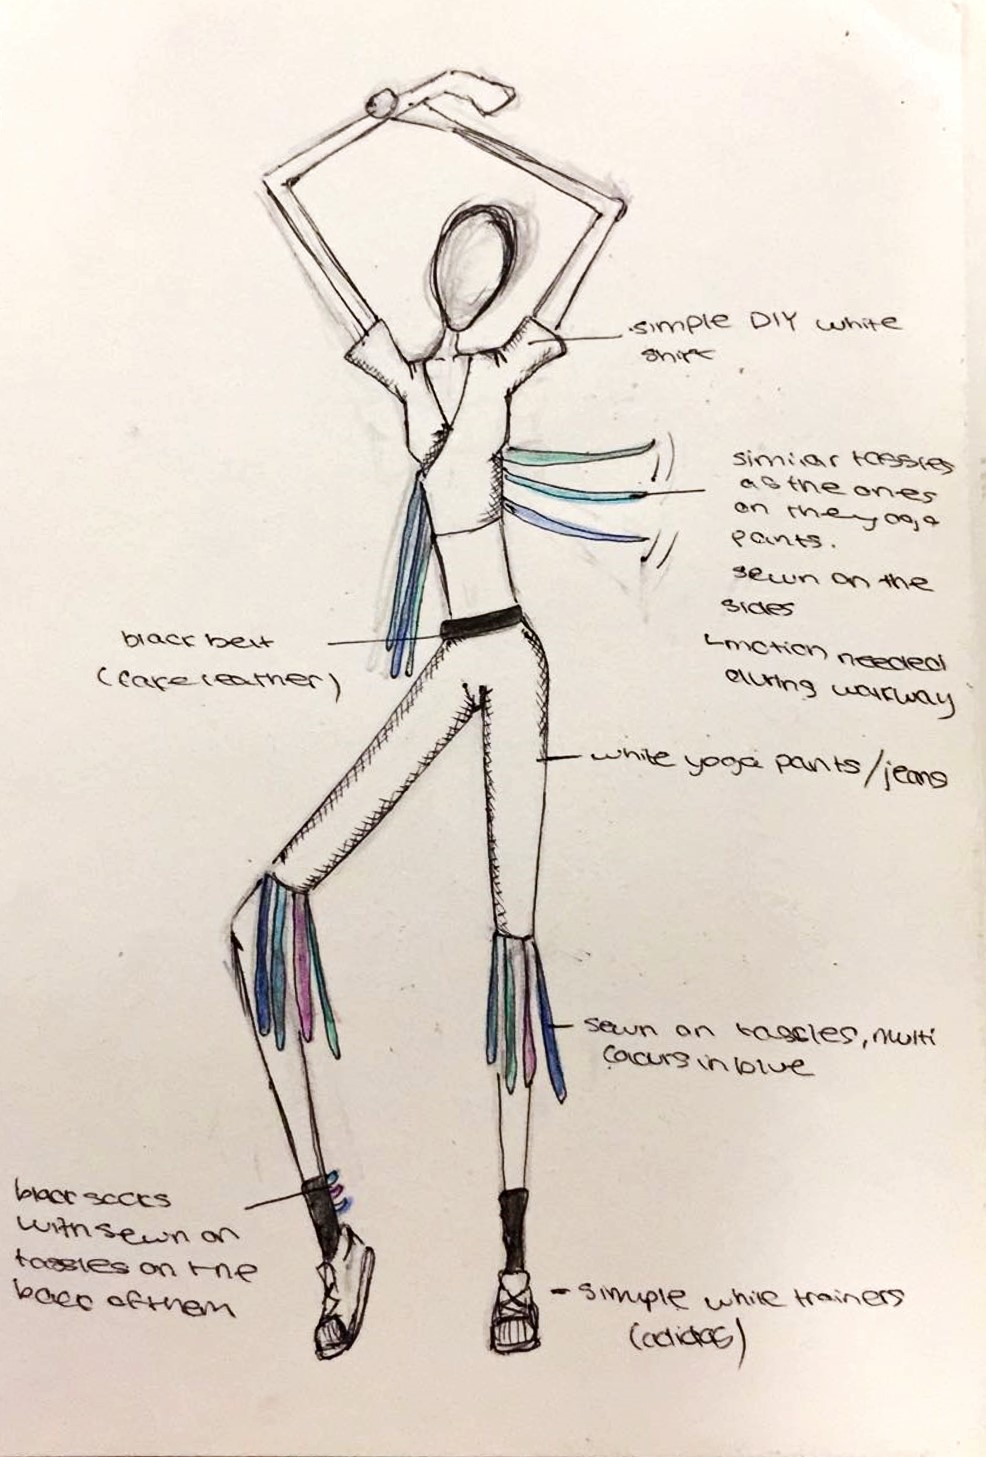 simple DIY white
shirt
similar tassles
as the ones
on the yoga
pants.
sewn on the
sides
motion needed
during walkway
black belt
(fake leather)
white yoga pants/jeans
sewn on tassles, multi
colours in blue
black socks
with sewn on
tassles on the
back of them
- simple white trainers
(adidas)